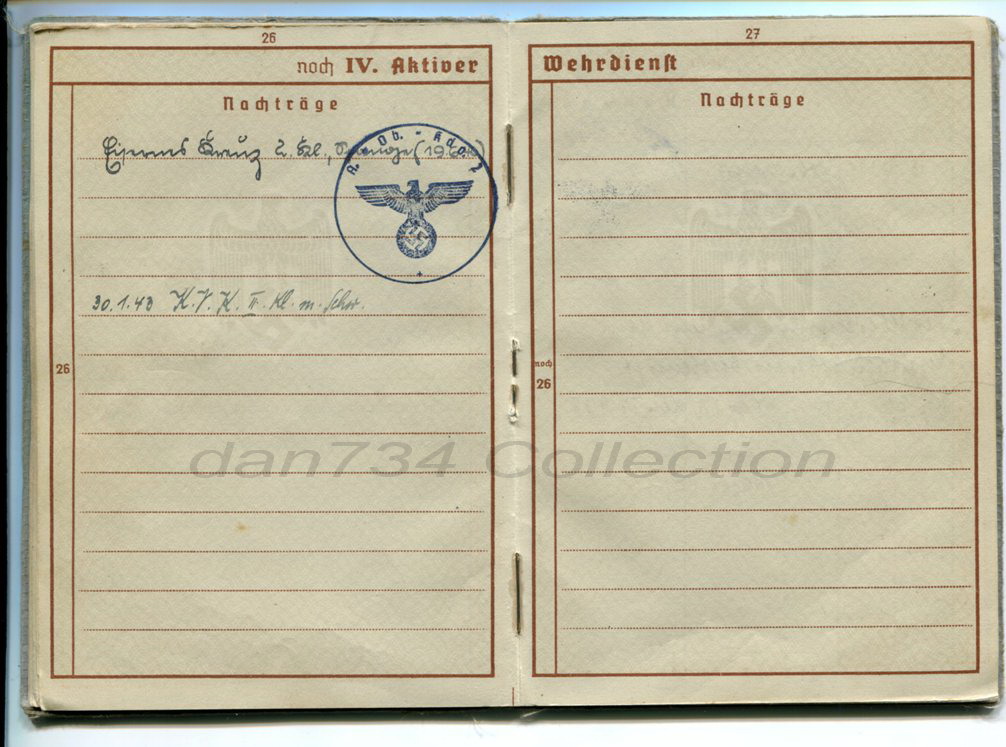 26
noch IV. Aktiver
Nachträge
Eisernes Kreuz 2. Kl., Spange (19
A. - Ob. - Kdo. 2
30.1.43 K.V.K. II. Kl. m. Schw.
26
27
Wehrdienst
Nachträge
noch
26
dan734 Collection